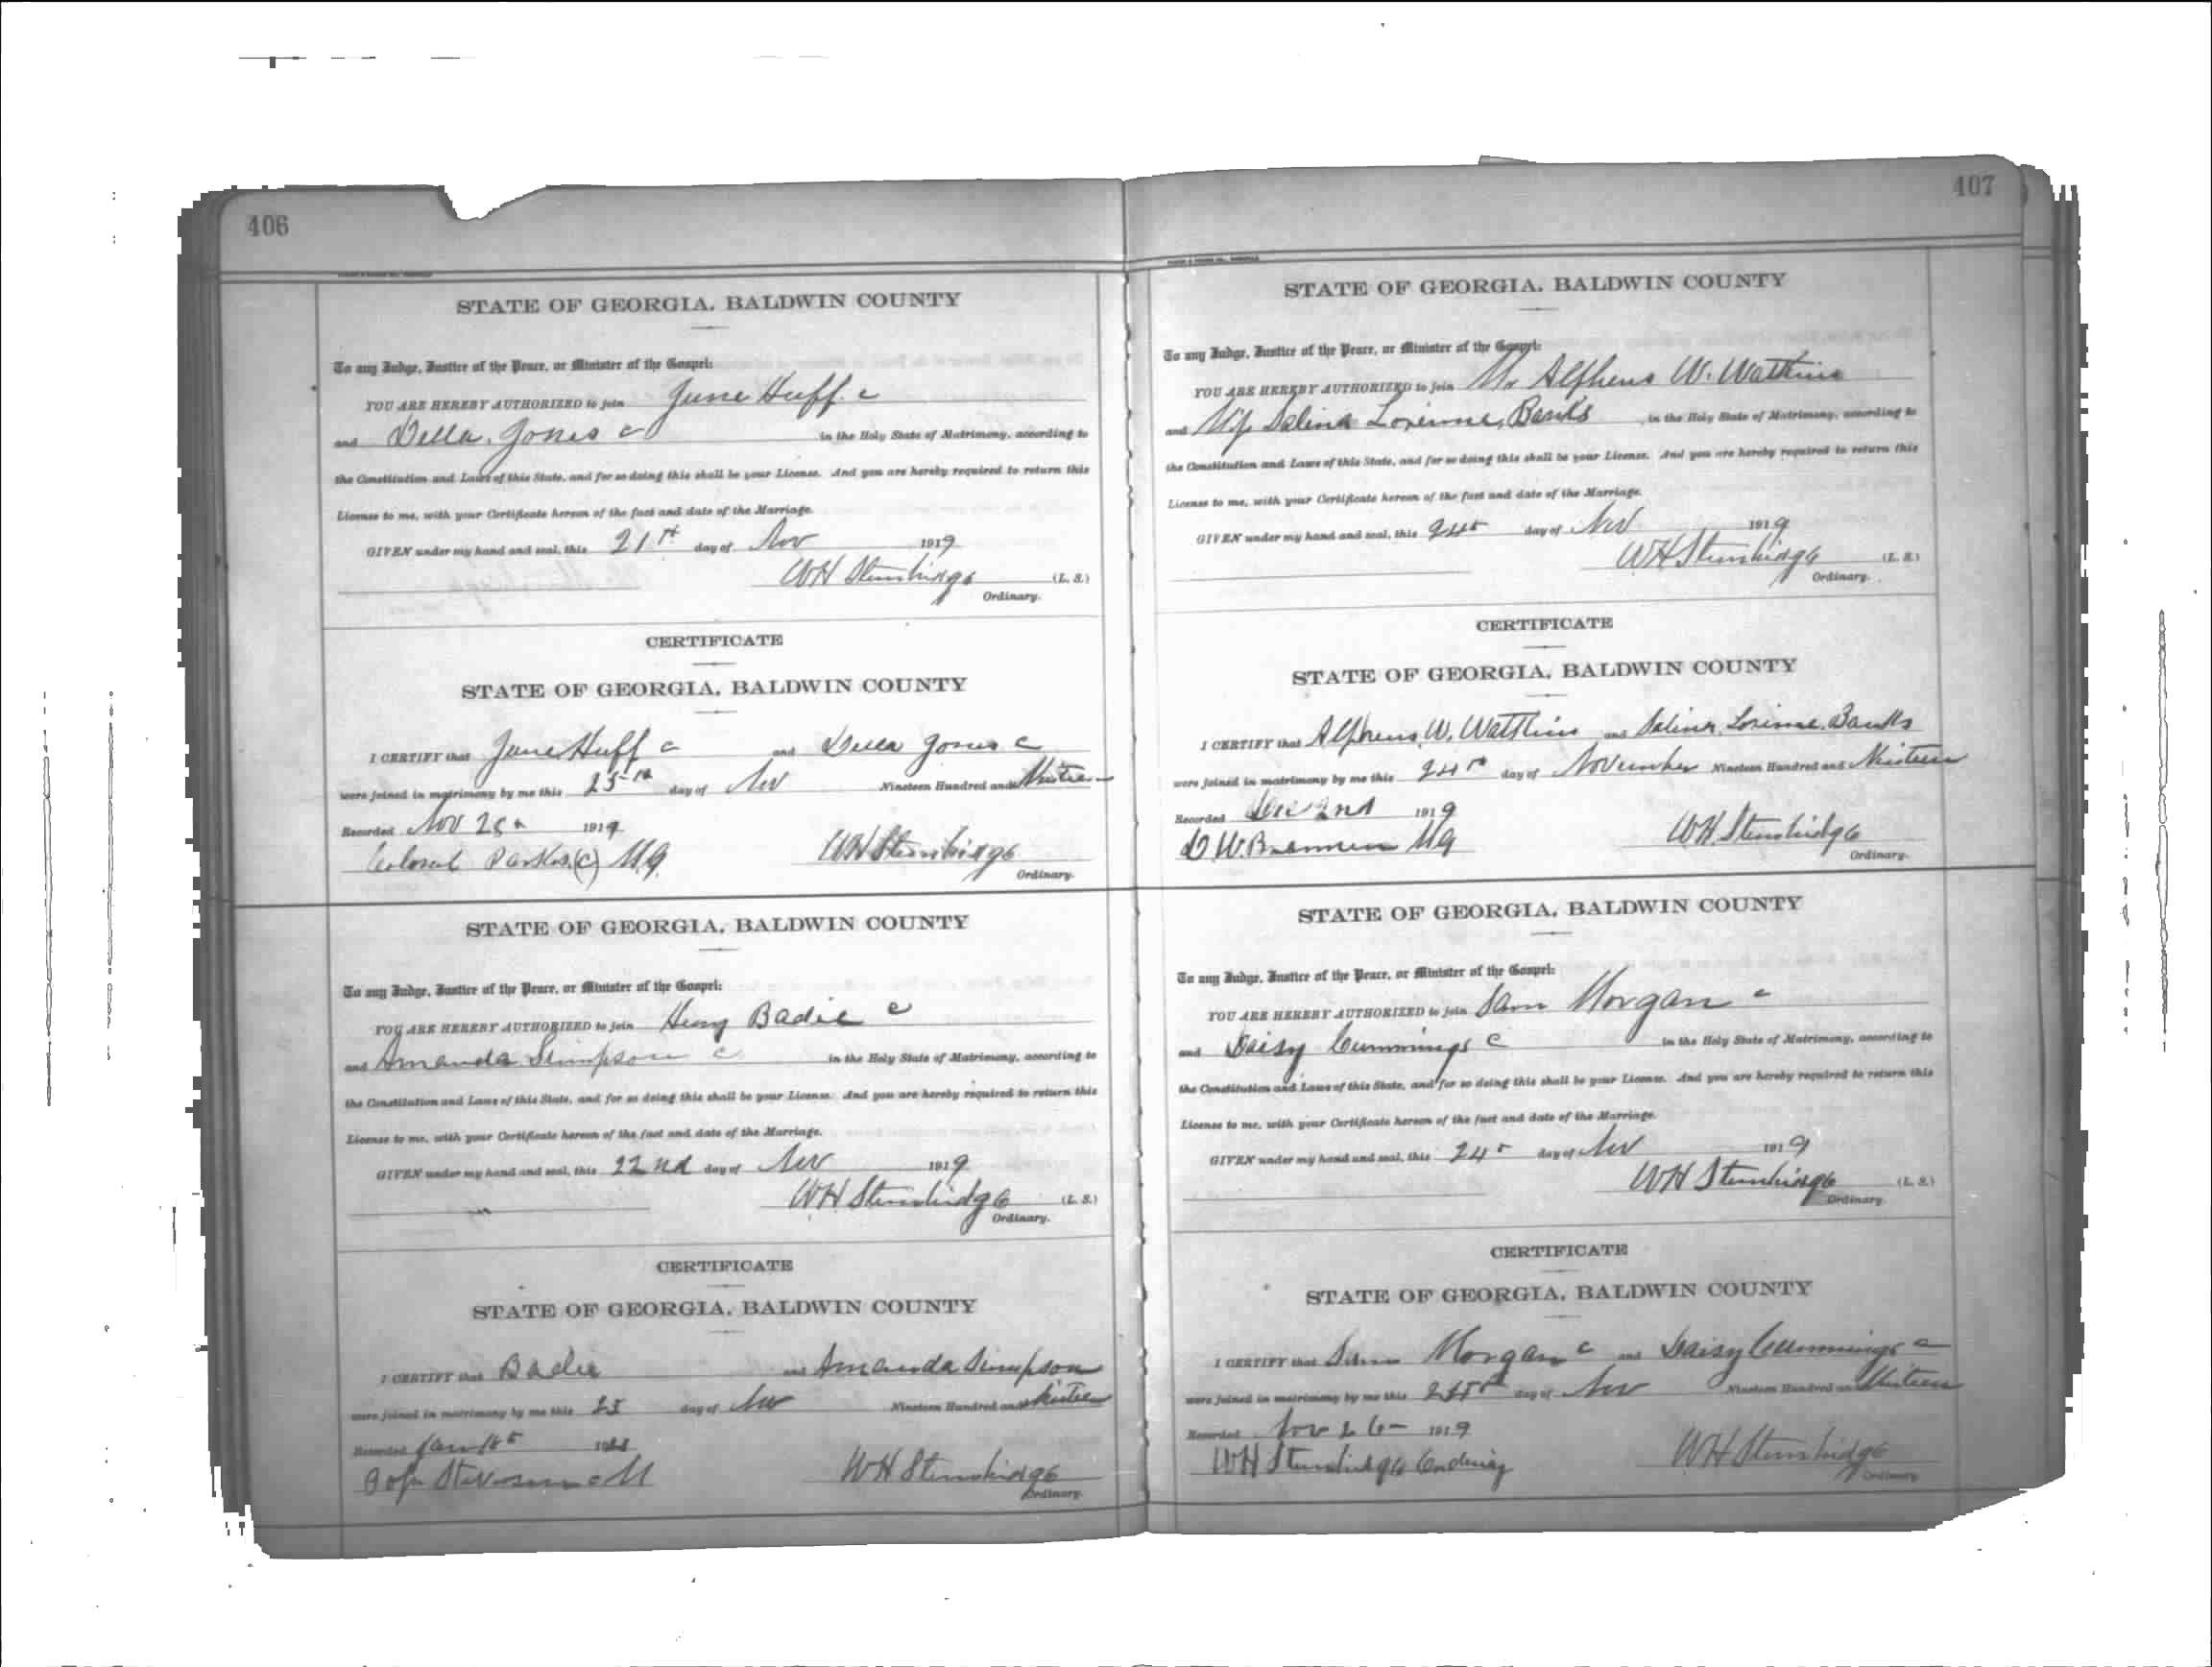 406
STATE OF GEORGIA, BALDWIN COUNTY
To any Judge, Justice of the Peace, or Minister of the Gospel:
YOU ARE HEREBY AUTHORIZED to join June Huff c
and Della Jones c in the Holy State of Matrimony, according to
the Constitution and Laws of this State, and for so doing this shall be your License. And you are hereby required to return this
License to me, with your Certificate hereon of the fact and date of the Marriage.
GIVEN under my hand and seal, this 21st day of Nov 1919
WH Stembridge (L. S.)
Ordinary.
CERTIFICATE
STATE OF GEORGIA, BALDWIN COUNTY
I CERTIFY that June Huff c and Della Jones c
were joined in matrimony by me this 25th day of Nov Nineteen Hundred and Nineteen
Recorded Nov 1919
Parks (c) M.G. WH Stembridge
Ordinary.
STATE OF GEORGIA, BALDWIN COUNTY
To any Judge, Justice of the Peace, or Minister of the Gospel:
YOU ARE HEREBY AUTHORIZED to join Henry Badie c
and Amanda Simpson c in the Holy State of Matrimony, according to
the Constitution and Laws of this State, and for so doing this shall be your License. And you are hereby required to return this
License to me, with your Certificate hereon of the fact and date of the Marriage.
GIVEN under my hand and seal, this 22nd day of Nov 1919
WH Stembridge (L. S.)
Ordinary.
CERTIFICATE
STATE OF GEORGIA, BALDWIN COUNTY
I CERTIFY that Badie and Amanda Simpson
were joined in matrimony by me this 25 day of Nov Nineteen Hundred and Nineteen
Recorded Jan
WH Stembridge
Ordinary.
407
STATE OF GEORGIA, BALDWIN COUNTY
To any Judge, Justice of the Peace, or Minister of the Gospel:
YOU ARE HEREBY AUTHORIZED to join Mr Alpheus W. Watkins
and Banks in the Holy State of Matrimony, according to
the Constitution and Laws of this State, and for so doing this shall be your License. And you are hereby required to return this
License to me, with your Certificate hereon of the fact and date of the Marriage.
GIVEN under my hand and seal, this 24th day of Nov 1919
WH Stembridge (L. S.)
Ordinary.
CERTIFICATE
STATE OF GEORGIA, BALDWIN COUNTY
I CERTIFY that Alpheus W. Watkins and Banks
were joined in matrimony by me this 24th day of November Nineteen Hundred and Nineteen
Recorded Dec 2nd 1919
W. Brannen MG WH Stembridge
Ordinary.
STATE OF GEORGIA, BALDWIN COUNTY
To any Judge, Justice of the Peace, or Minister of the Gospel:
YOU ARE HEREBY AUTHORIZED to join Sam Morgan c
and Daisy Cummings c in the Holy State of Matrimony, according to
the Constitution and Laws of this State, and for so doing this shall be your License. And you are hereby required to return this
License to me, with your Certificate hereon of the fact and date of the Marriage.
GIVEN under my hand and seal, this 24th day of Nov 1919
WH Stembridge (L. S.)
Ordinary.
CERTIFICATE
STATE OF GEORGIA, BALDWIN COUNTY
I CERTIFY that Sam Morgan c and Daisy Cummings c
were joined in matrimony by me this day of Nov Nineteen Hundred and Nineteen
Recorded Nov 26 1919
WH Stembridge Ordinary WH Stembridge
Ordinary